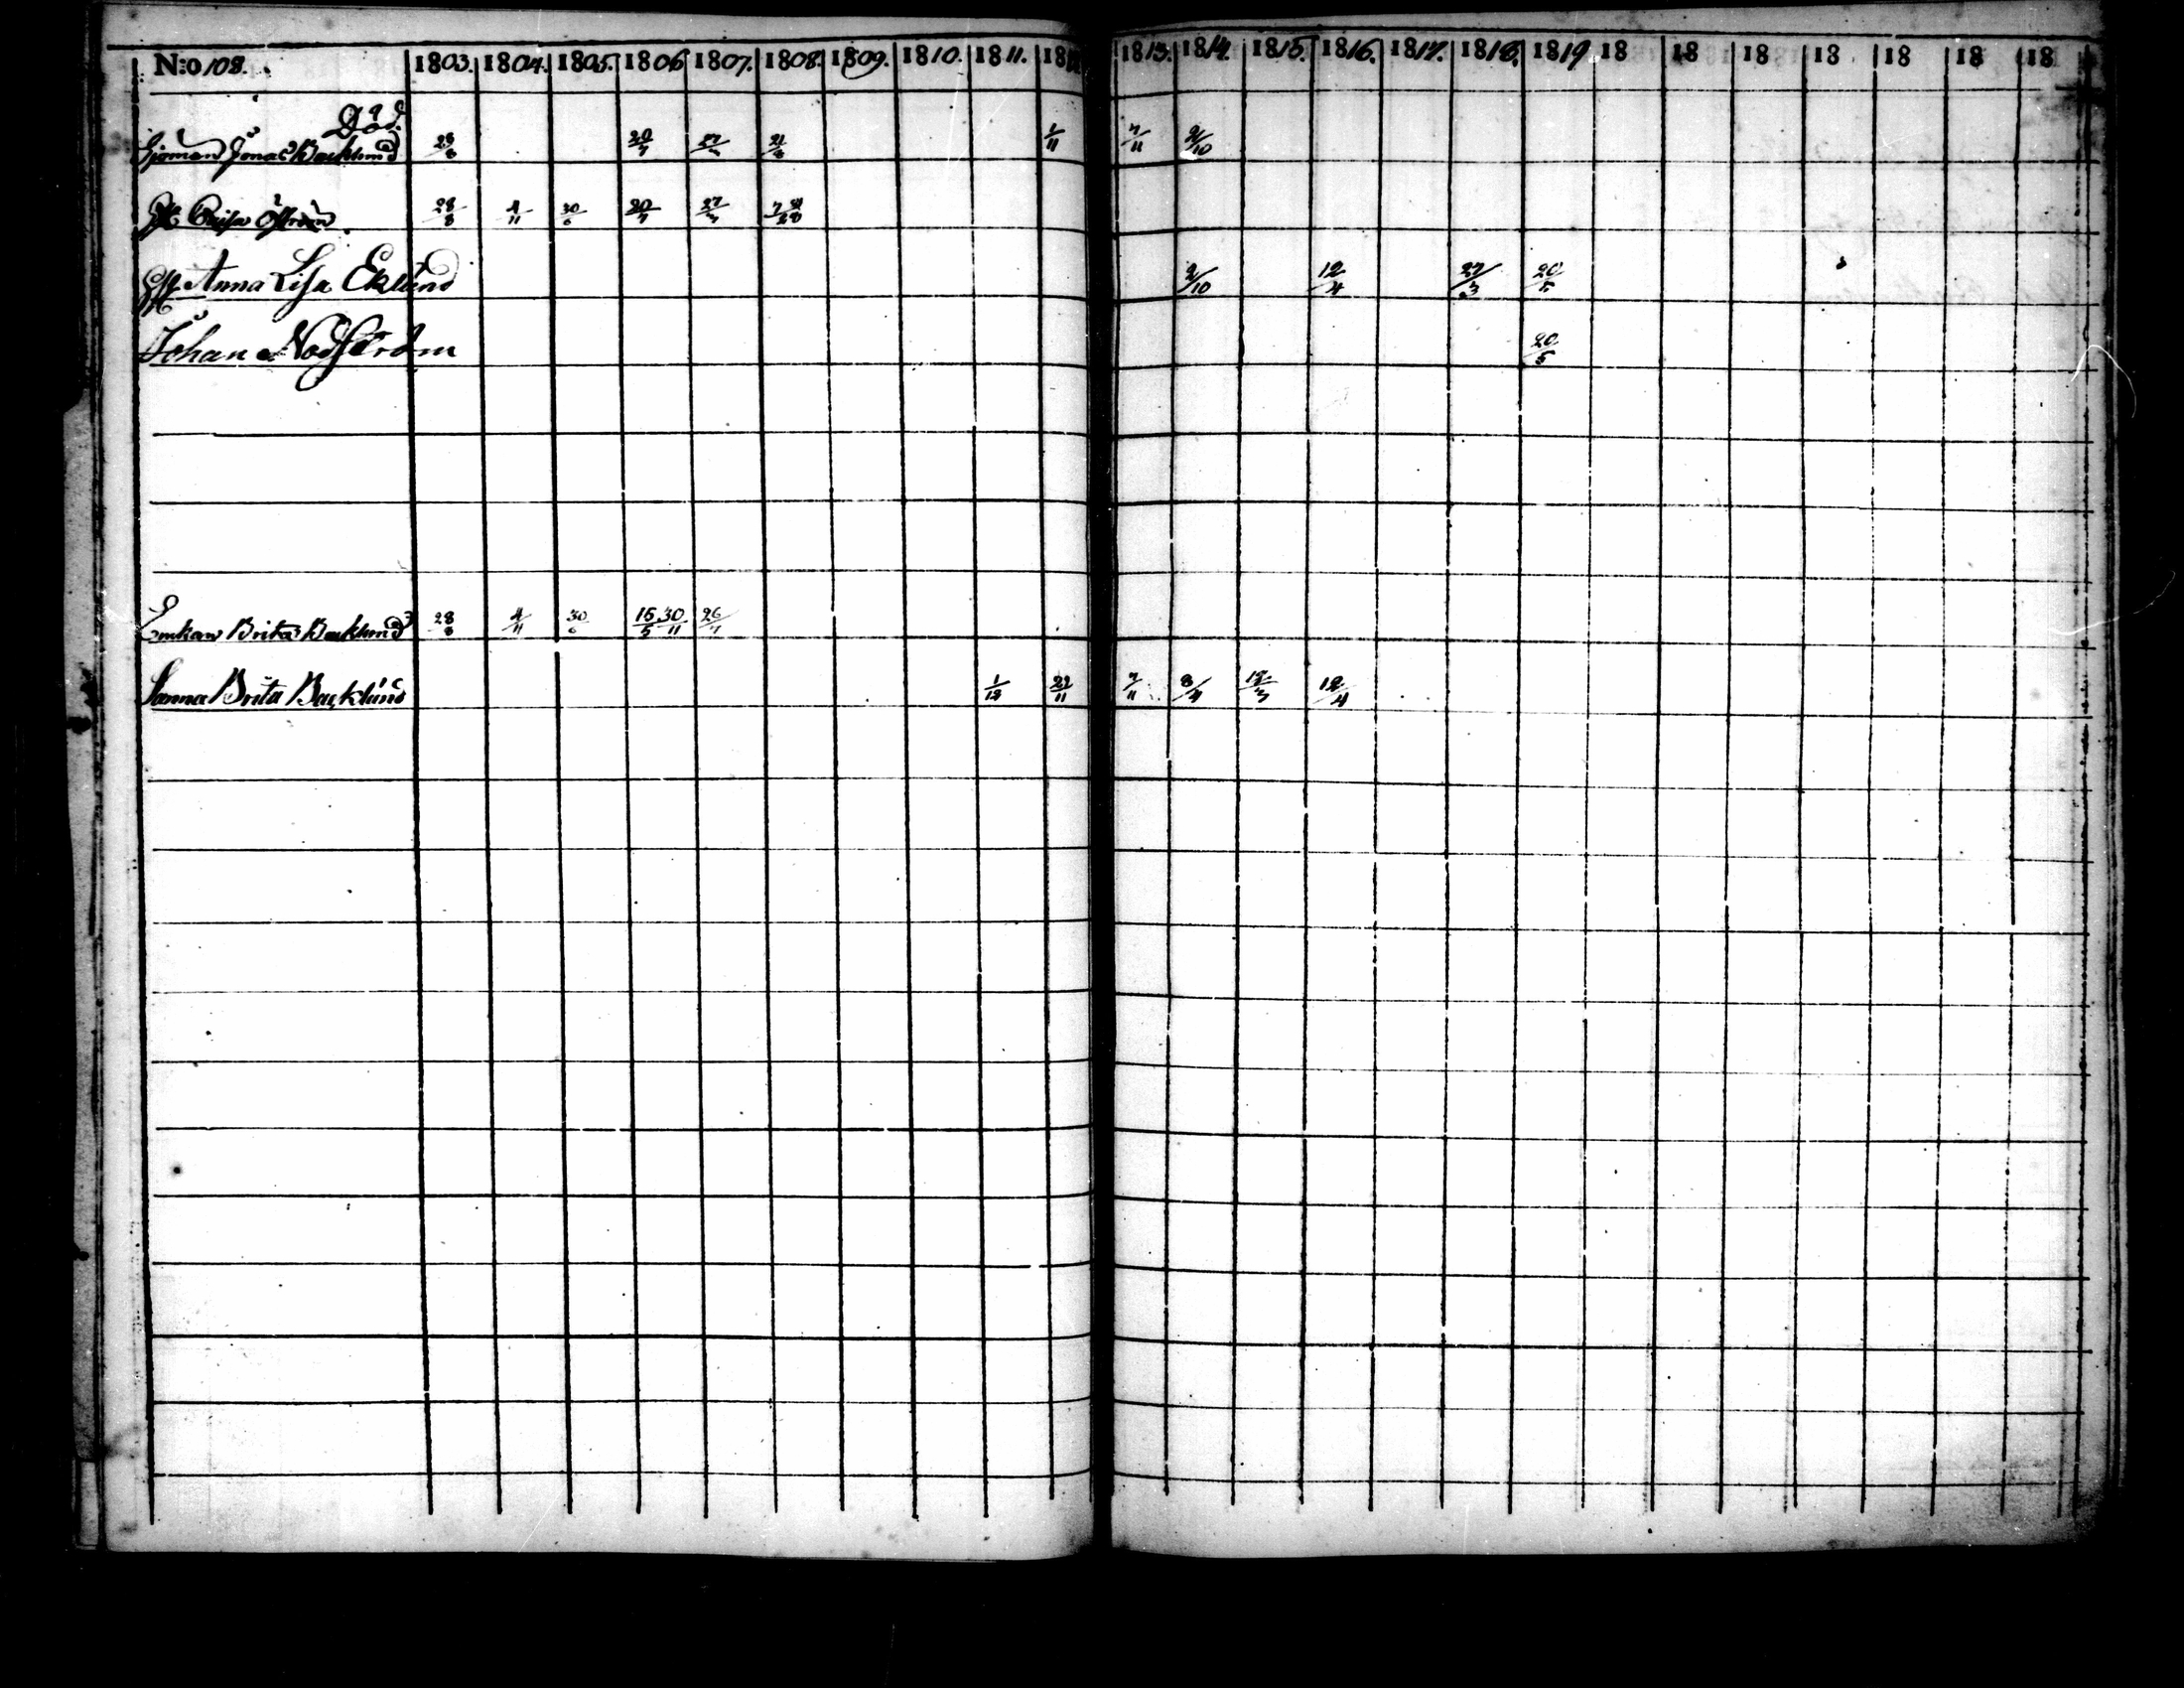 N:o 108. 1803. 1804. 1805. 1806 1807. 1808. 1809. 1810. 1811. 18 1813. 1814. 1815. 1816. 1817. 1818. 1819 18 18 18 18 18 18 18
Död.
Sjöman Jonas Backlund 28/8 20/7 27/ 21/8 1/11 7/11 2/10
H Caisa Öström 28/8 4/11 30/6 20/7 27/
H Anna Lisa Eklund 2/10 12/4 27/3 20/5
Johan Nodström 20/5
Enkan Brita Backlund 28/8 4/11 30/6 15/5 30/11 26/7
Sanna Brita Backlund 1/12 22/11 7/11 8/4 12/3 12/4